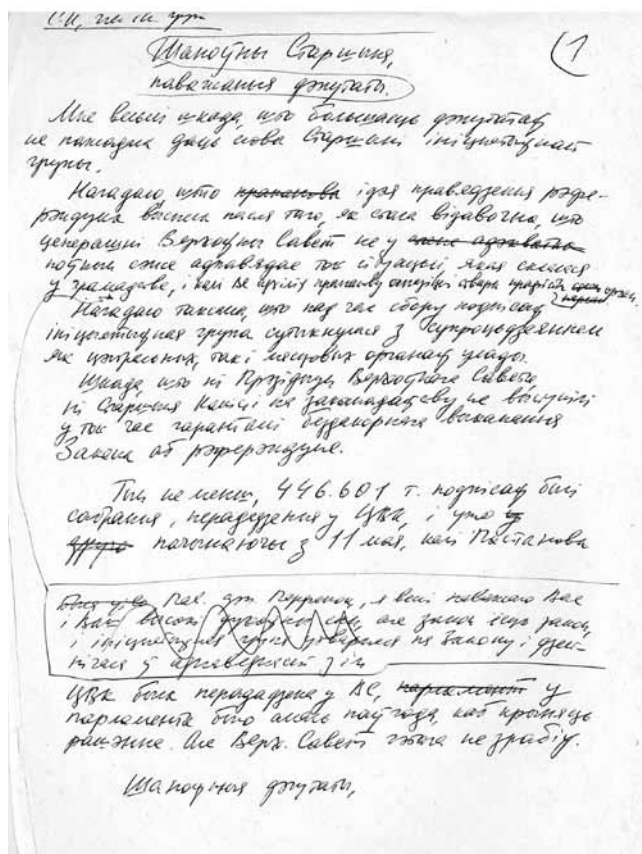 Шаноўны Старшыня,
(1
паважаныя дэпутаты.
Мне вельмі шкада, што большасць дэпутатаў
не пажадала даць слова Старшыні ініцыятыўнай
групы.
Нагадаю, што прапанова ідэя правядзення рэфе-
рэндума вынікла пасля таго, як стала відавочна, што
цяперашні Вярхоўны Савет не ў
адпавядае той сітуацыі, якая склалася
ў грамадстве, і калі ВС
Нагадаю таксама, што пад час збору подпісаў
ініцыятыўная група сутыкнулася з супрацьдзеяннем
як цэнтральных, так і мясцовых органаў улады.
Шкада, што ні Прэзідыум Вярхоўнага Савета,
ні Старшыня Камісіі па заканадаўству не выступілі
ў той час гарантамі бездакорнага выканання
Закона аб рэферэндуме.
Тым не менш, 446.601 т. подпісаў былі
сабраныя, перададзеныя у ЦВК, і ўжо у
другі пачынаючы з 11 мая, калі Пастанова
я вельмі паважаю Вас
і Вашы але закон ёсць закон,
і ініцыятыўная група па Закону і дзей-
нічала ў адпаведнасці з ім
ЦВК была перададзена у ВС, парламент у
парламента было амаль паўгода, каб прыняць
рашэнне. Але Верх. Савет гэтага не зрабіў.
Шаноўныя дэпутаты,